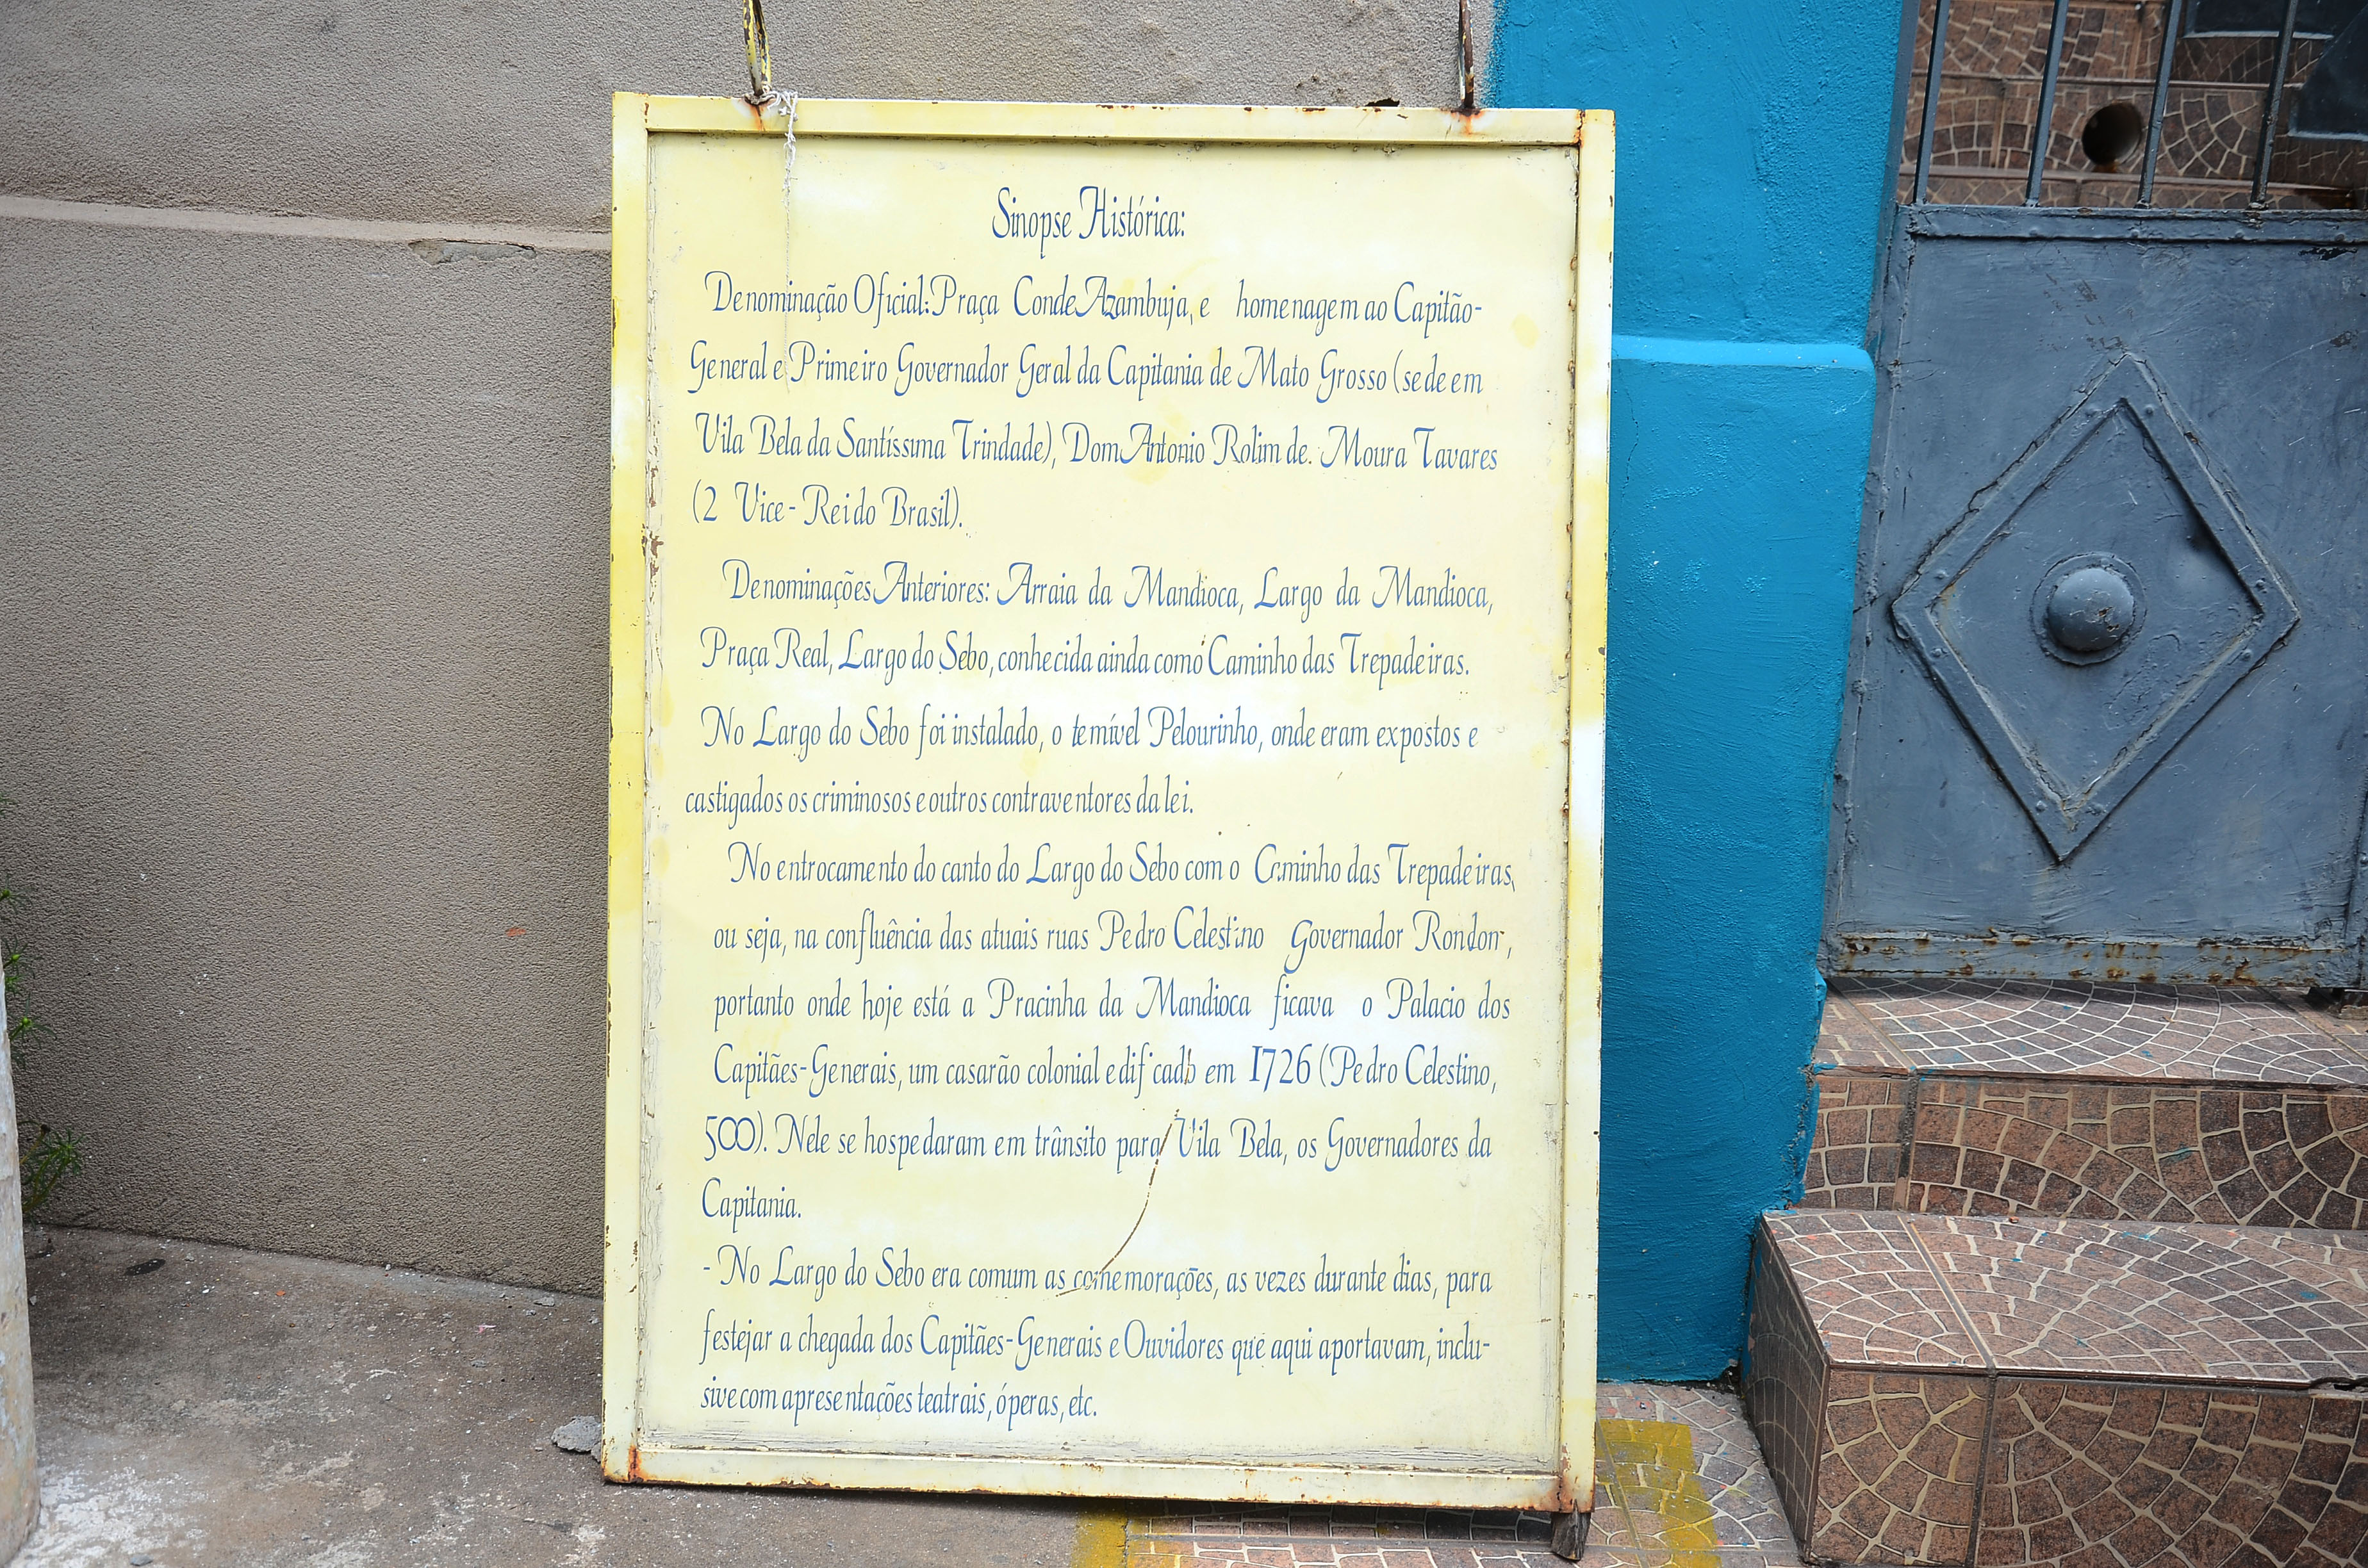 Sinopse Histórica:
Denominação Oficial: Praça Conde Azambuja, e homenagem ao Capitão-
General e Primeiro Governador Geral da Capitania de Mato Grosso (sede em
Vila Bela da Santíssima Trindade), Dom Antonio Rolim de. Moura Tavares
(2 Vice-Rei do Brasil).
Denominações Anteriores: Arraia da Mandioca, Largo da Mandioca,
Praça Real, Largo do Sebo, conhecida ainda como Caminho das Trepadeiras.
No Largo do Sebo foi instalado, o temível Pelourinho, onde eram expostos e
castigados os criminosos e outros contraventores da lei.
No entrocamento do canto do Largo do Sebo com o Caminho das Trepadeiras,
ou seja, na confluência das atuais ruas Pedro Celestino Governador Rondon,
portanto onde hoje está a Pracinha da Mandioca ficava o Palacio dos
Capitães-Generais, um casarão colonial edificado em 1726 (Pedro Celestino,
500). Nele se hospedaram em trânsito para Vila Bela, os Governadores da
Capitania.
- No Largo do Sebo era comum as comemorações, as vezes durante dias, para
festejar a chegada dos Capitães-Generais e Ouvidores que aqui aportavam, inclu-
sive com apresentações teatrais, óperas, etc.